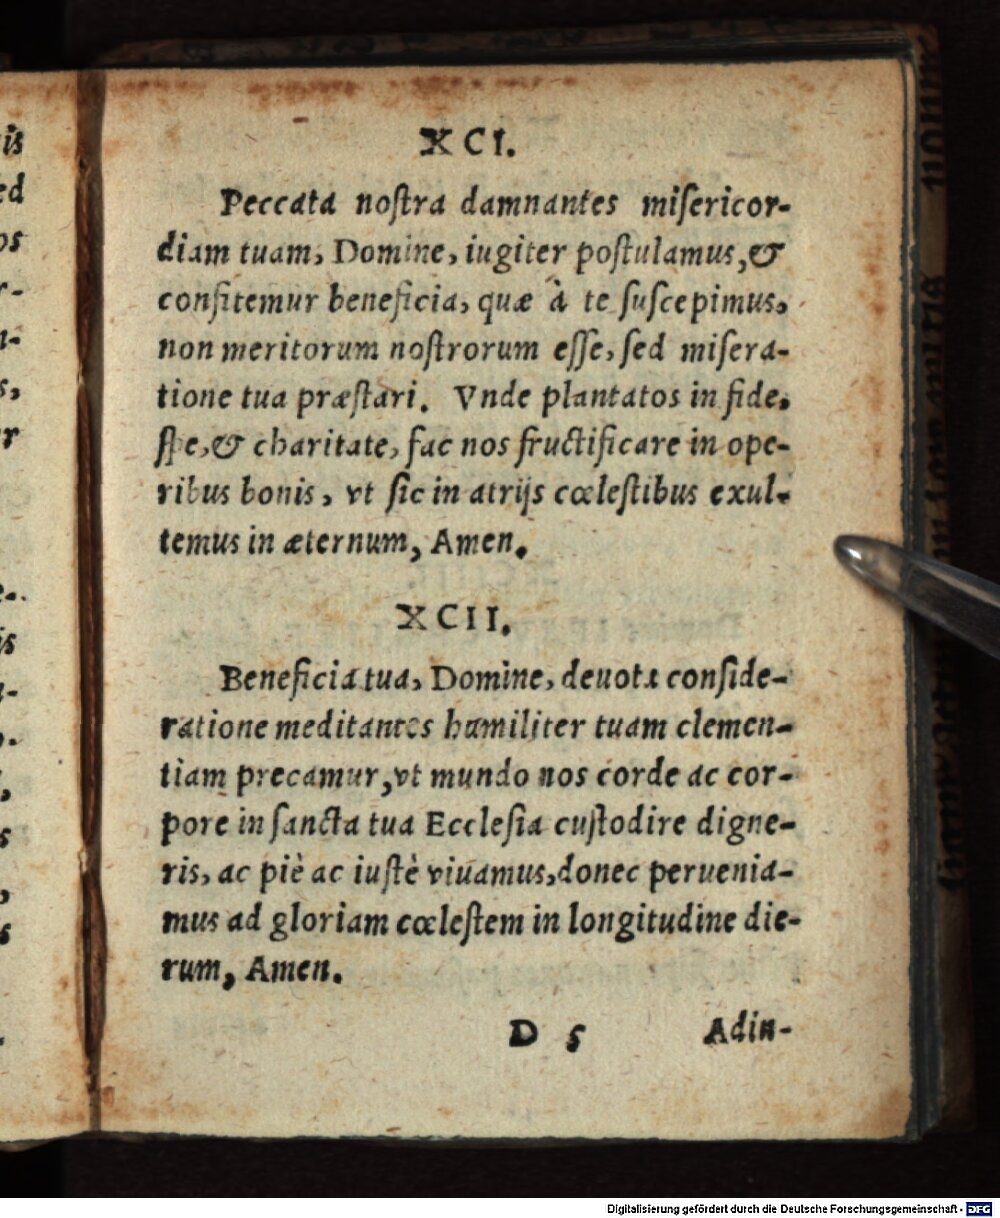 XCI.
Peccata noſtra damnantes miſericor-
diam tuam, Domine, iugiter poſtulamus, &
confitemur beneficia, quæ à te ſuſcepimus,
non meritorum noſtrorum eſſe, ſed miſera-
tione tua præſtari. Vnde plantatos in fide,
ſpe, & charitate, fac nos fructificare in ope-
ribus bonis, vt ſic in atrijs cœleſtibus exul-
temus in æternum, Amen.
XCII.
Beneficia tua, Domine, deuota conſide-
ratione meditantes humiliter tuam clemen-
tiam precamur, vt mundo nos corde ac cor-
pore in ſancta tua Eccleſia cuſtodire digne-
ris, ac piè ac iuſtè viuamus, donec peruenia-
mus ad gloriam cœleſtem in longitudine die-
rum, Amen.
D 5 Adiu-
Digitalisierung gefördert durch die Deutsche Forschungsgemeinschaft - DFG